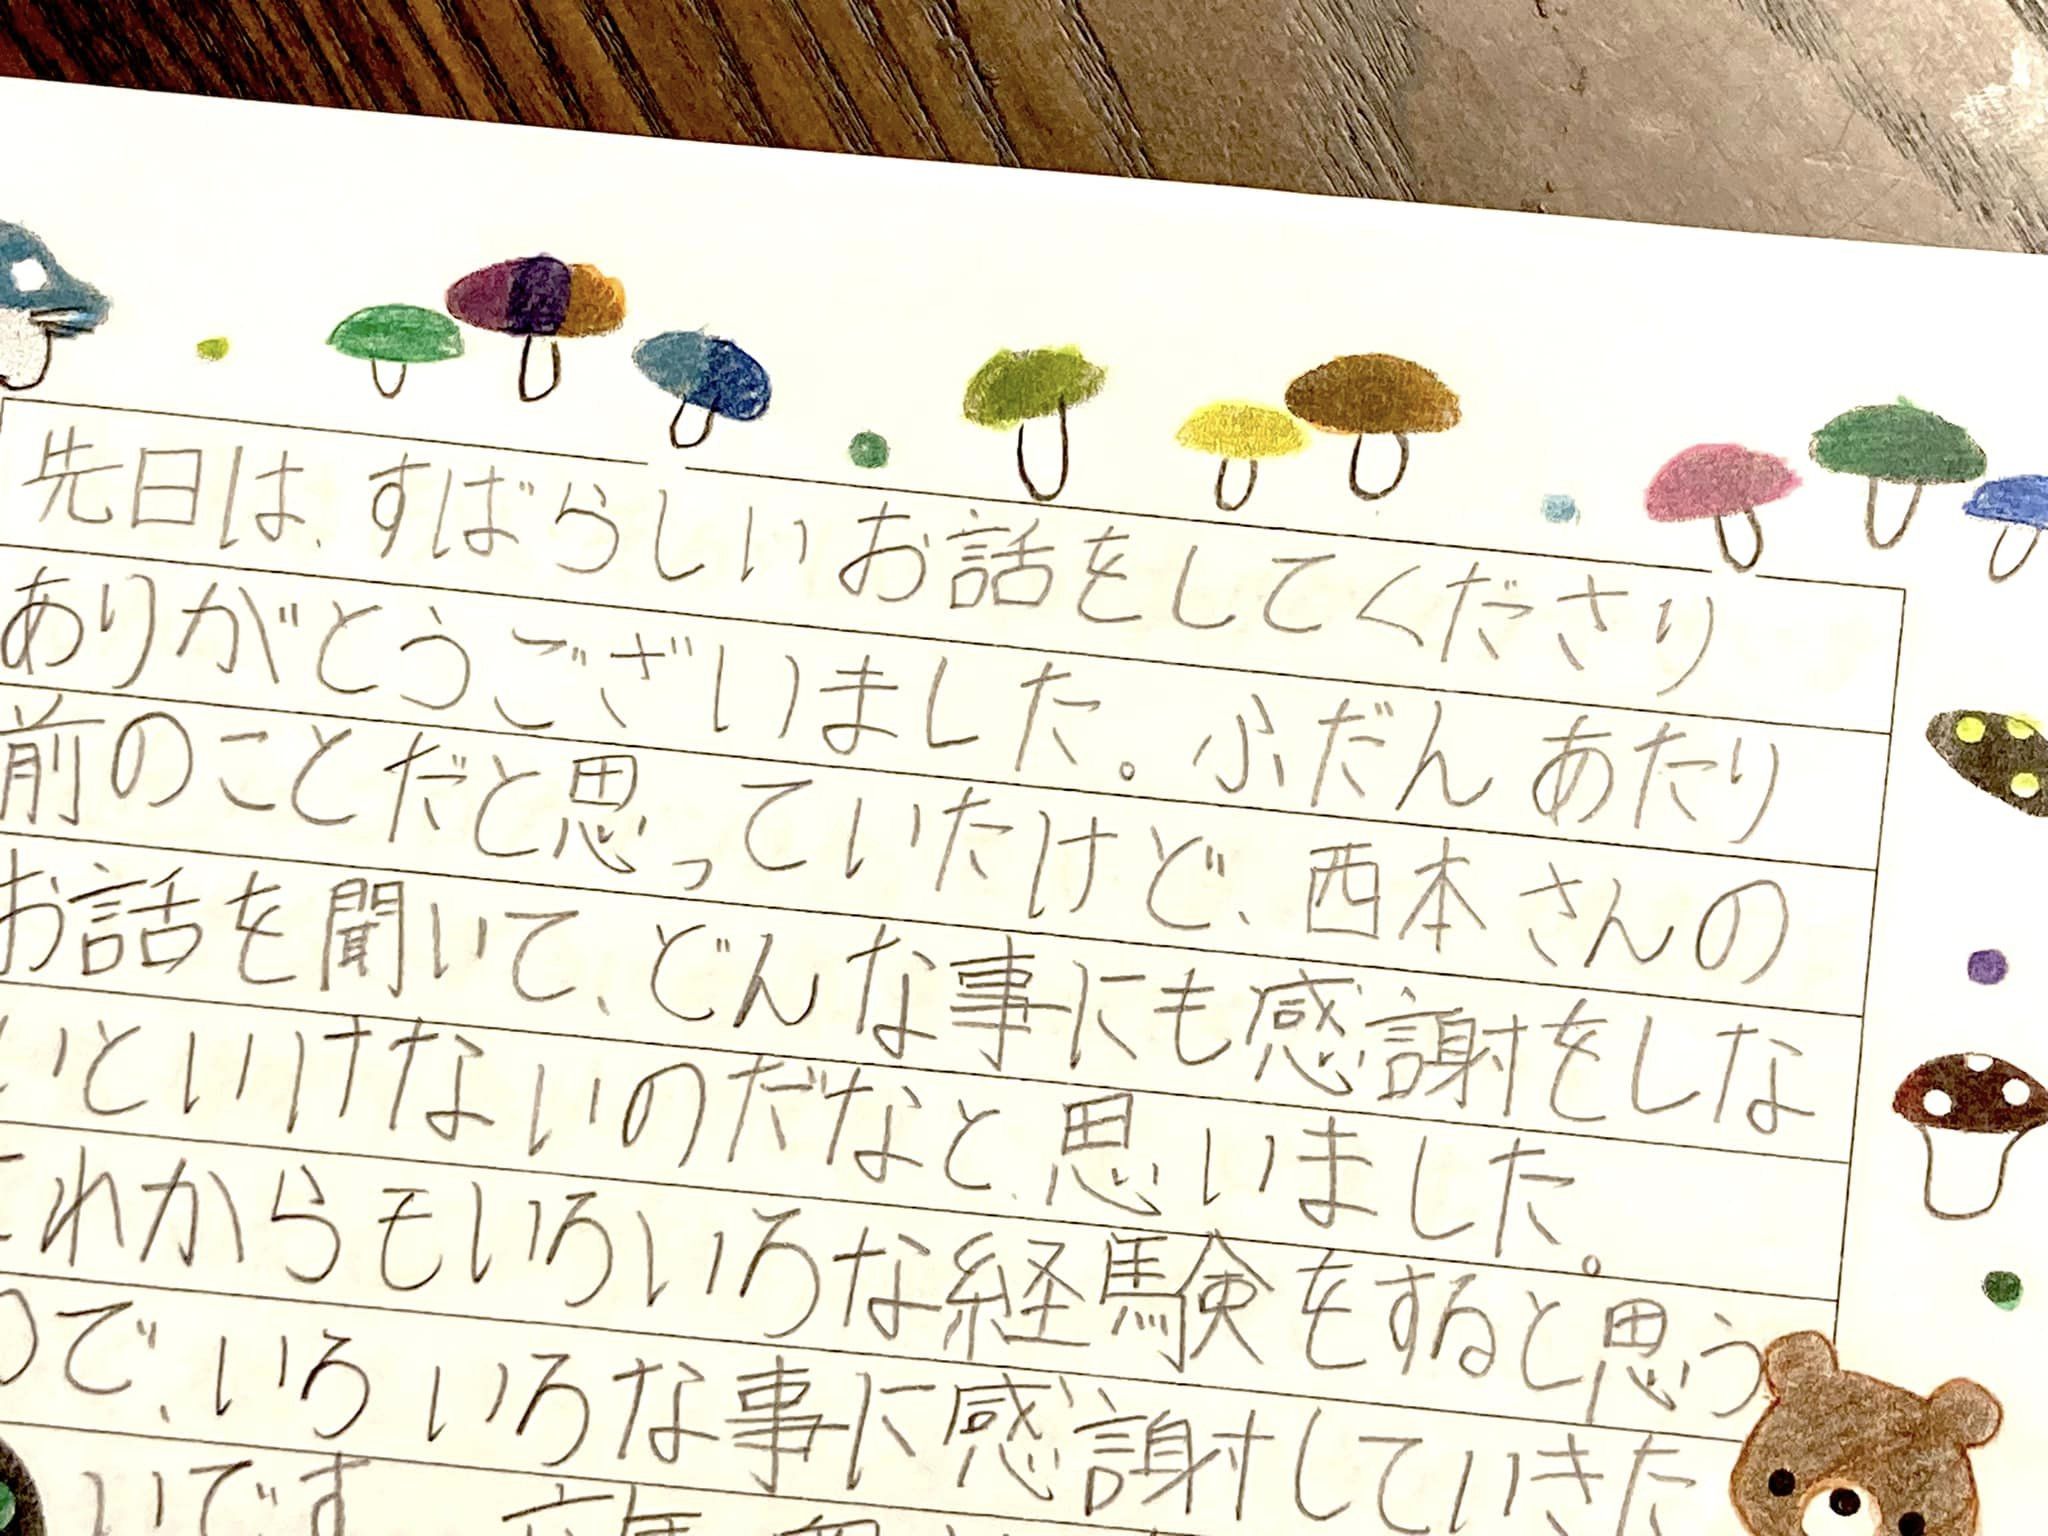 先日は、すばらしいお話をしてくださり
ありがとうございました。ふだんあたり
前のことだと思っていたけど、西本さんの
お話を聞いて、どんな事にも感謝をしな
いといけないのだなと、思いました。
これからもいろいろな経験をすると思う
ので、いろいろな事に感謝していきた
いです